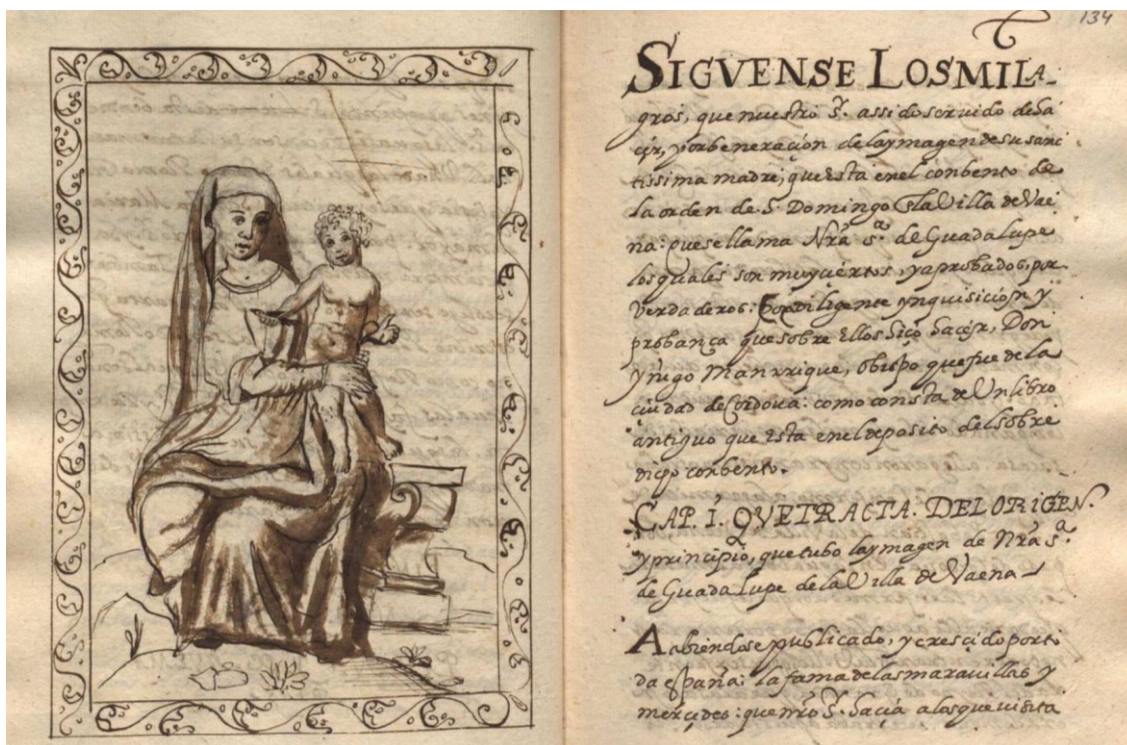 134
SIGVENSE LOS MILA-
gros, que nuestro Sr. a ssido servido de ha
çer, y por beneraçion de la ymagen de su sanc
tissima madre; que esta en el conbento de
la orden de S. Domingo de la Villa de Vae
na: que se llama Nrã Sª de Guadalupe
los quales son muy çiertos, y aprobados, por
verdaderos: por diligente ynquisiçion y
probança que sobre ellos hiço haçer, Don
yñigo Manrrique, Obispo que fue de la
ciudad de Cordova: como consta de Un libro
antiguo que esta en el deposito del sobre
dicho conbento.
CAP. I. QVE TRACTA. DEL ORIGEN.
y prinçipio, que tubo la ymagen de Nrã Sª
de Guadalupe de la Villa de Vaena
Abiendose publicado, y cresçido por to
da españa: la fama de las maravillas y
merçedes: que nrõ Sr. haçia a los que visita